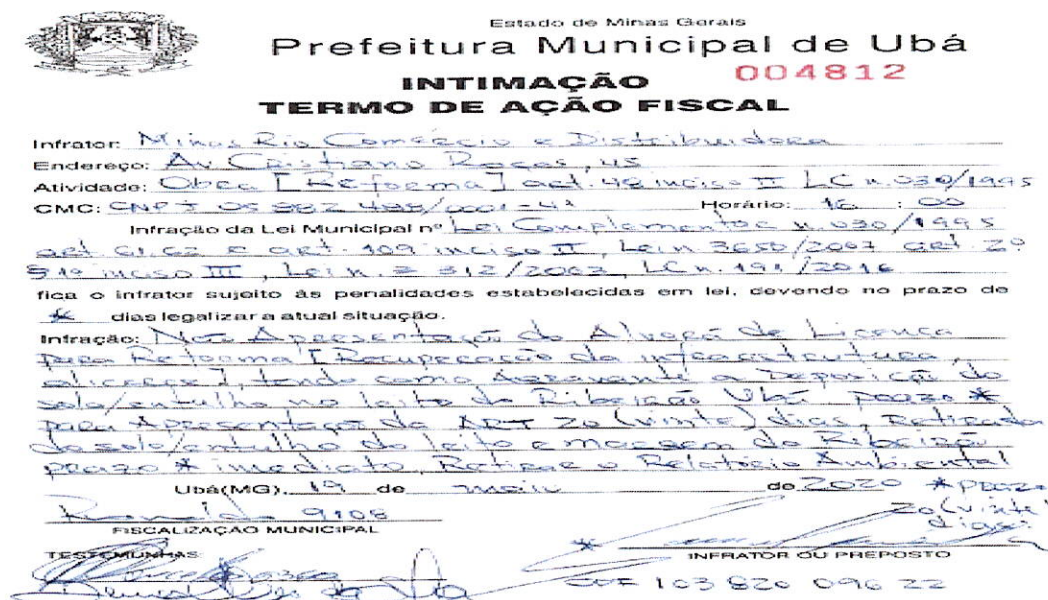 Estado de Minas Gerais
Prefeitura Municipal de Ubá
004812
INTIMAÇÃO
TERMO DE AÇÃO FISCAL
Infrator: Minas Rio Comércio e Distribuidora
Endereço: Av. Cristiano Roças, 45
Atividade: Obra [Reforma] art. 48 inciso II LC n. 030/1995
CMC: CNPJ Horário: 16 : 00
Infração da Lei Municipal nº Lei Complementar n. 030/1995
art. 61, 62 e art. 109 inciso II, Lei n. 3650/2007 art. 2º
§ 1º inciso III, Lei n. 3 312/2003, LC n. 191/2016
fica o infrator sujeito às penalidades estabelecidas em lei, devendo no prazo de
* dias legalizar a atual situação.
Infração: Não Apresentação do Alvará de Licença
para Reforma [Recuperação da infraestrutura,
alicerçe], tendo como Agravante a Deposição do
solo/entulho no leito do Ribeirão Ubá prazo *
para Apresentação da ART 20 (vinte) dias, Retirada
do solo/entulho do leito e margem do Ribeirão
prazo * imediato, o Relatório Ambiental
Ubá(MG), 19 de maio de 2020 * prazo
20 (vinte)
dias
9108
FISCALIZAÇÃO MUNICIPAL
TESTEMUNHAS:
*
INFRATOR OU PREPOSTO
CPF 103 820 096 22